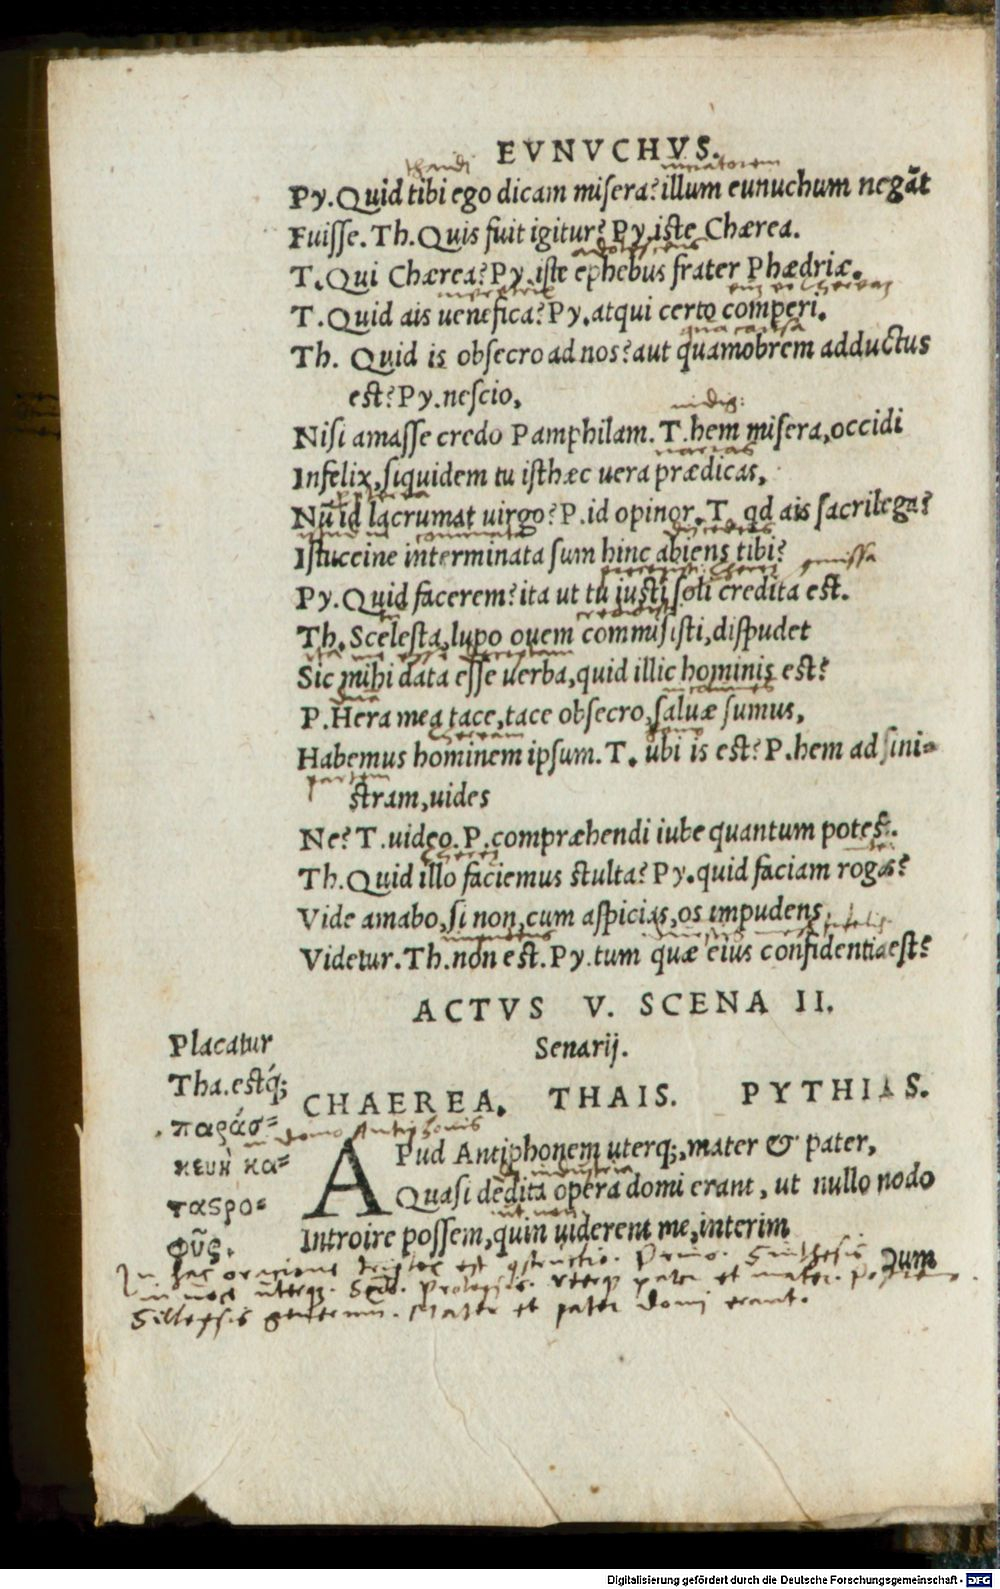 EVNVCHVS.
Py. Quid tibi ego dicam misera? illum eunuchum negāt
Fuisse. Th. Quis fuit igitur? Py. iste Chærea.
T. Qui Chærea? Py. iste ephebus frater Phædriæ.
T. Quid ais uenefica? Py. atqui certo comperi.
qua causa
Th. Quid is obsecro ad nos? aut quamobrem adductus
est? Py. nescio,
Nisi amasse credo Pamphilam. T. hem misera, occidi
narras
Infelix, siquidem tu isthæc uera prædicas,
propterea
Nū id lacrumat uirgo? P. id opinor. T. qd ais sacrilega?
Istuccine interminata sum hinc abiens tibi?
Py. Quid facerem? ita ut tu iusti soli credita est.
Th. Scelesta, lupo ouem commisisti, dispudet
Sic mihi data esse uerba, quid illic hominis est?
P. Hera mea tace, tace obsecro, saluæ sumus,
Chaeream
Habemus hominem ipsum. T. ubi is est? P. hem ad sini-
partem
stram, uides
Ne? T. video. P. compræhendi iube quantum potes.
Th. Quid illo faciemus stulta? Py. quid faciam rogas?
Vide amabo, si non, cum aspicias, os impudens,
Videtur. Th. non est. Py. tum quæ eius confidentia est?
ACTVS V. SCENA II.
Senarij.
CHAEREA. THAIS. PYTHIAS.
Placatur
Tha. estq;
παράσ-
κευὴ κα-
ταςρο-
φῦς.
in domo Antiphonis
APud Antiphonem uterq;, mater & pater,
industria
Quasi dedita opera domi erant, ut nullo nodo
Introire possem, quin uiderent me, interim
Dum
In hac oratione triplex est constructio. Primo. Sinthesis
in uoce uterq. Prolepsis. uterq pater et mater.
Sillepsis generum. Mater et pater domi erant.